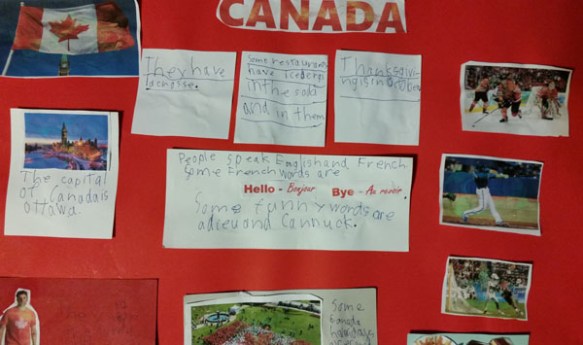 CANADA
They have
lacrosse.
Some restaurants
have
in the cold
and in them
Thanksgivi-
ngis in
The capital
of Canada is
ottawa.
People speak English and French
Some French words are
Hello - Bonjour Bye - Au revoir
Some funny words are
adieu and Cannuck.
Some
holidays